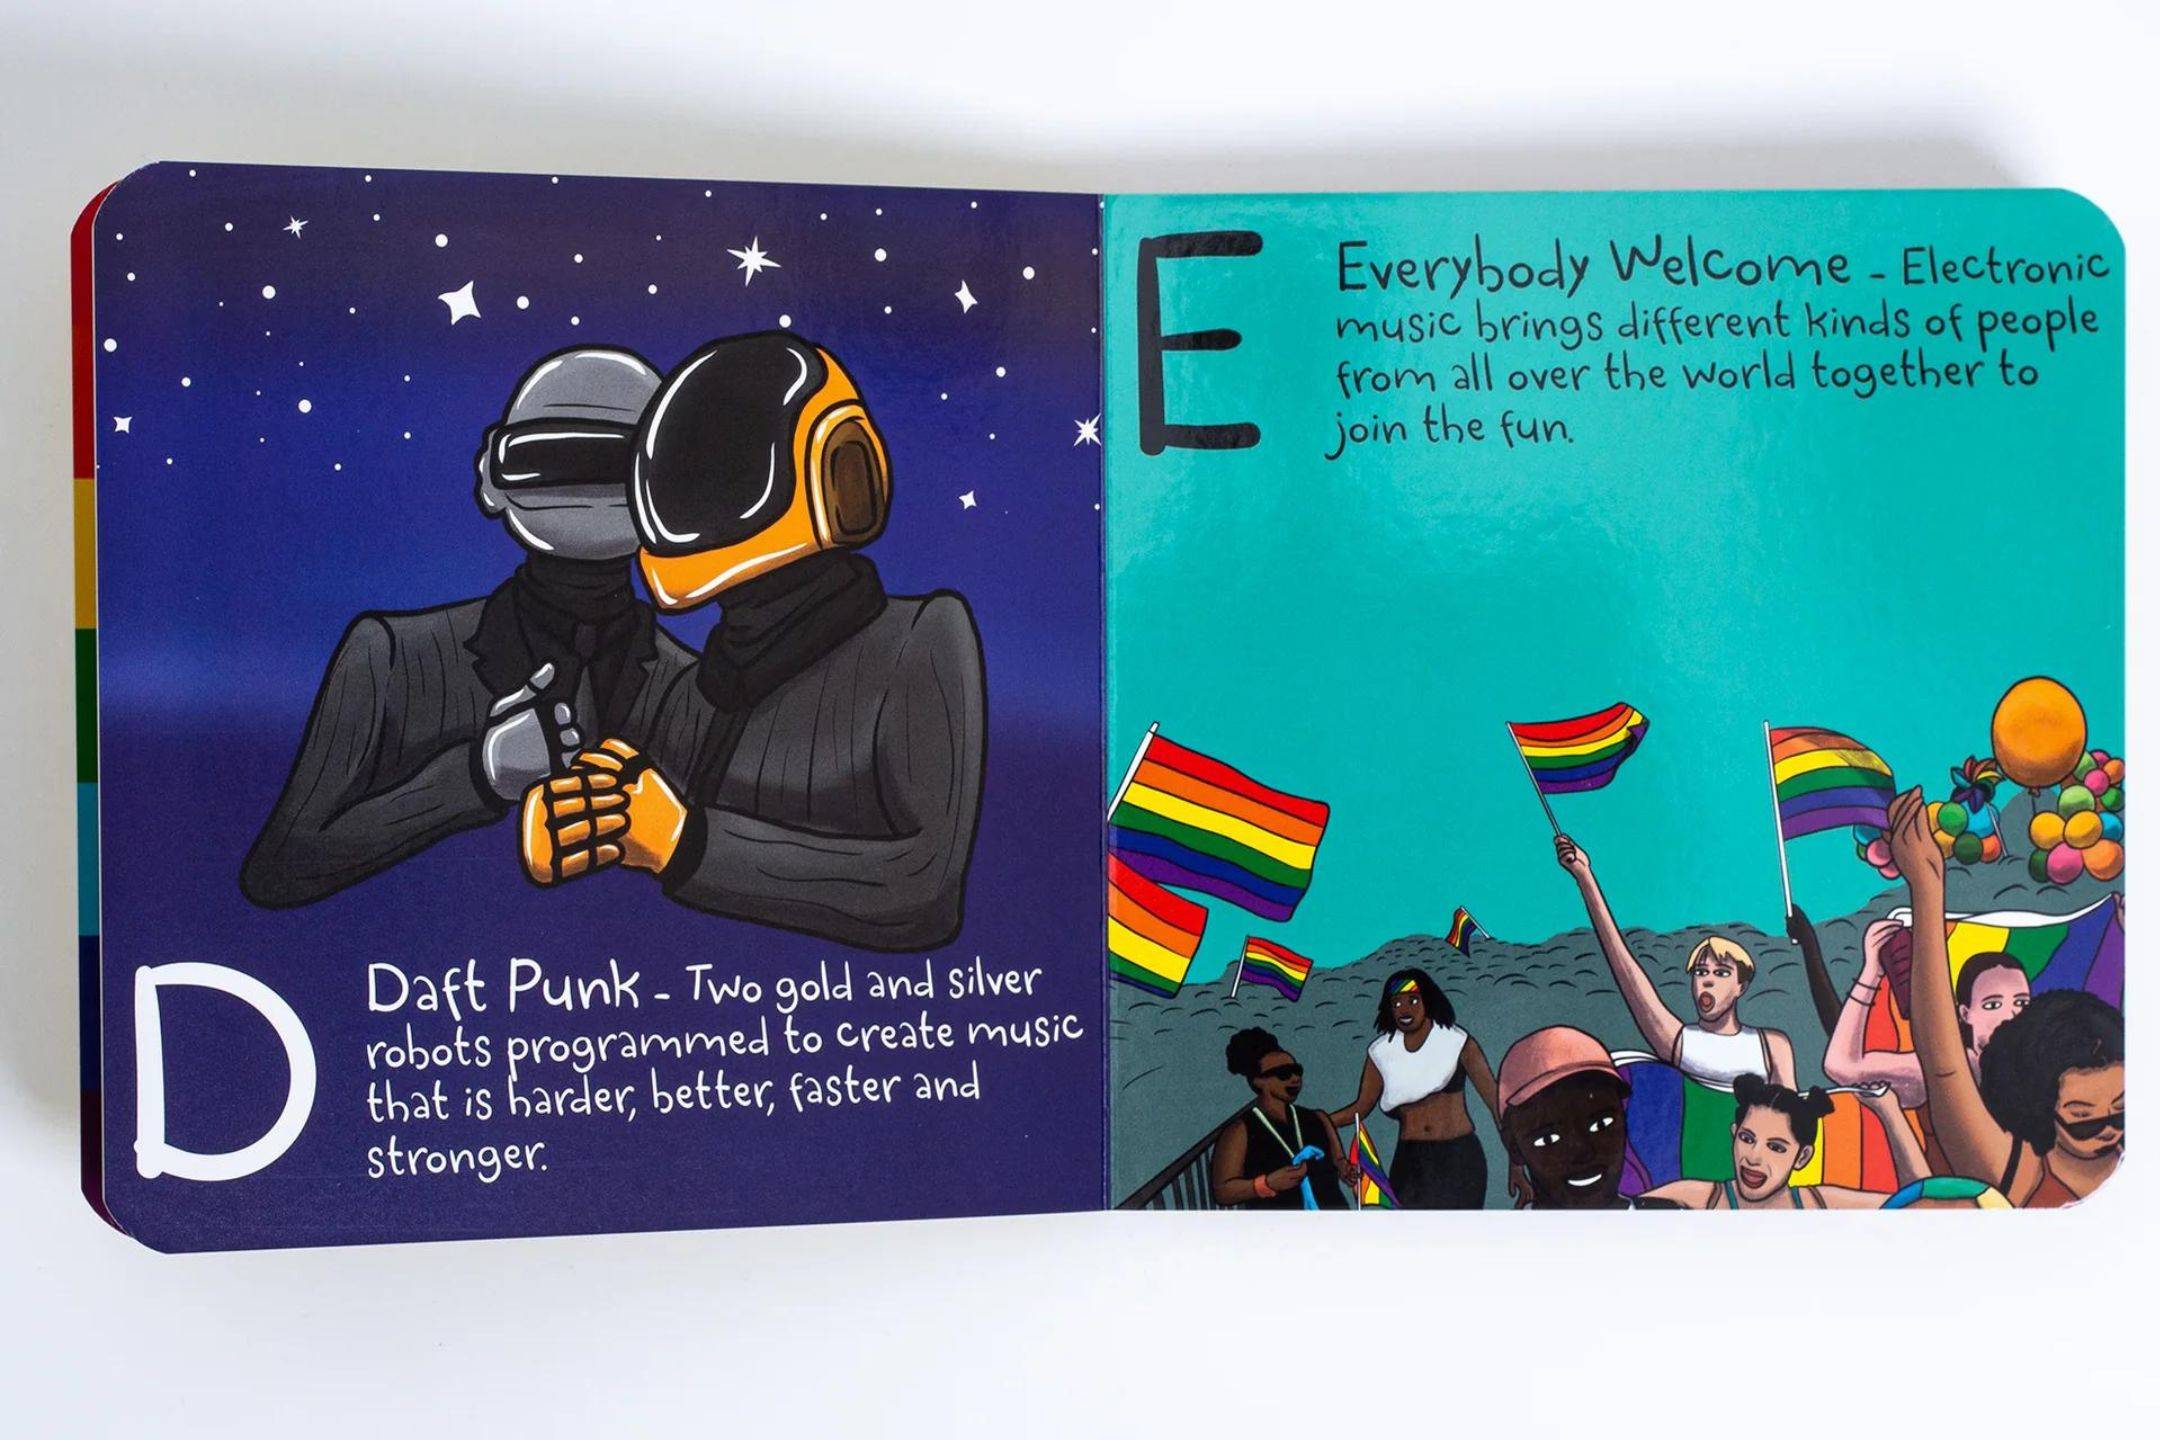 D
Daft Punk - Two gold and silver
robots programmed to create music
that is harder, better, faster and
stronger.
E
Everybody Welcome - Electronic
music brings different kinds of people
from all over the world together to
join the fun.